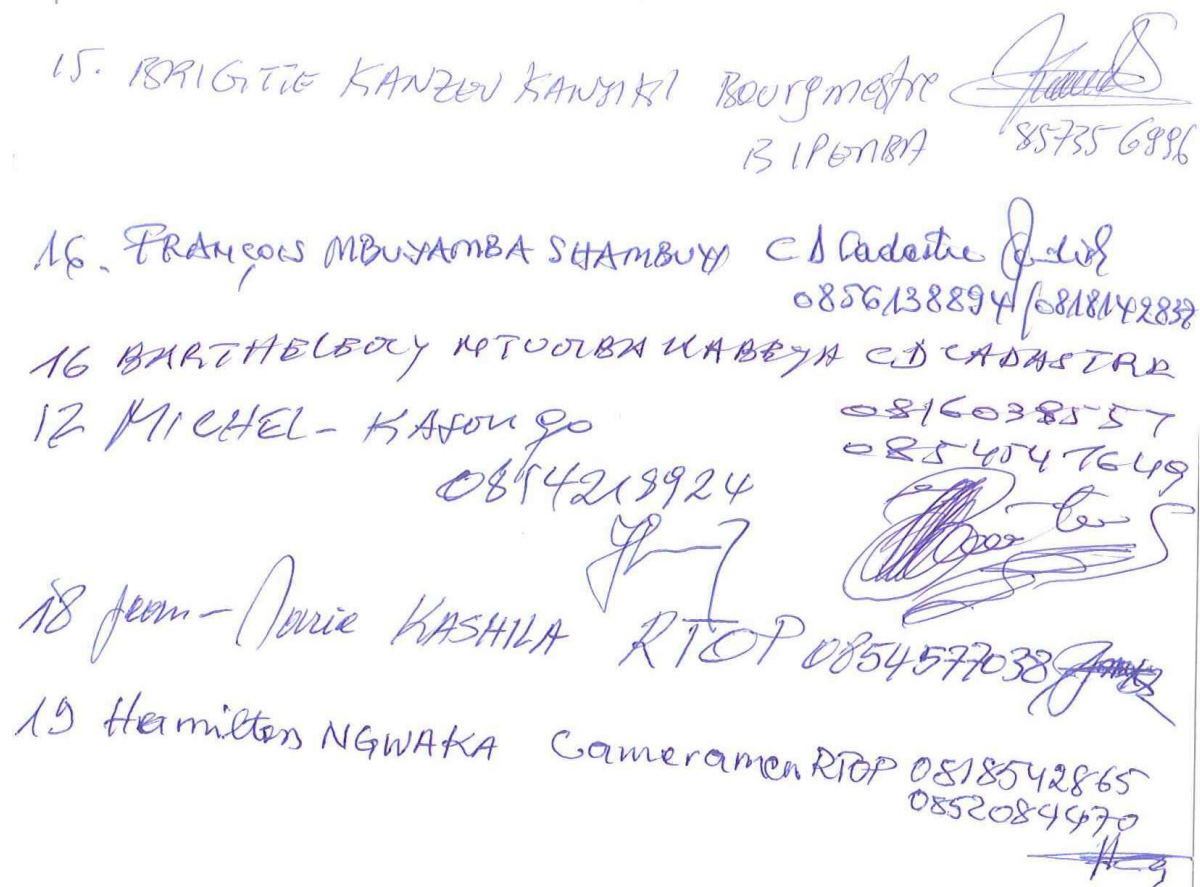 15. BRIGITTE KANZEU KANYIKI Bourgmestre
BIPEMBA 857356996
16. FRANÇOIS MBUYAMBA SHAMBUYI CD Cadastre
0856138894/0818142832
16 BARTHELEMY NTUMBA KABEYA CD CADASTRE
0816038557
17 MICHEL-KASONGO
0854547649
0854218924
18 Jean-Marie KASHILA RTOP 0854577038
19 Hamilton NGWAKA Cameramen RTOP 0818542865
0852084470